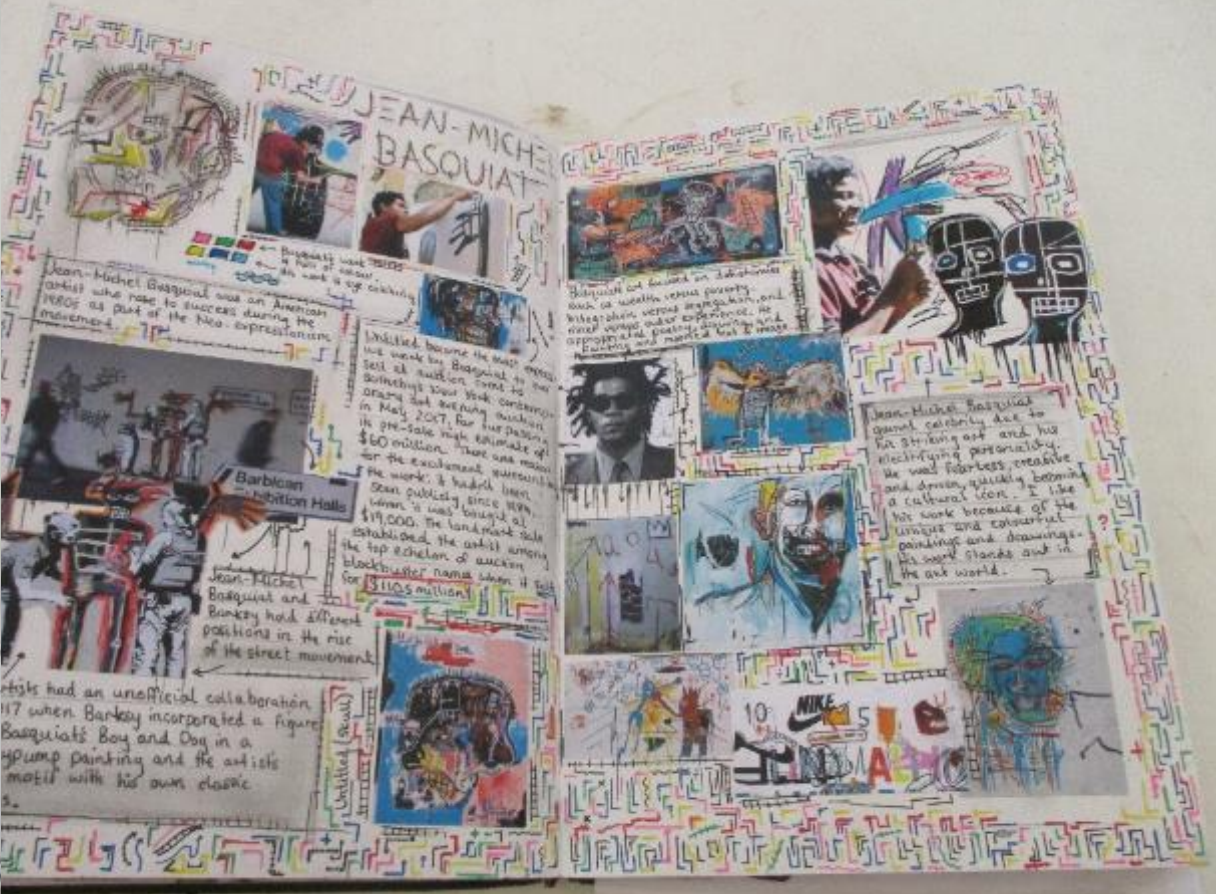 JEAN-MICHEL
BASQUIAT
Basquiat's work
is full of colour.
His work is eye catching
Jean-Michel Basquiat was an American
artist who rose to success during the
1980s as part of the Neo-expressionism
movement.
Untitled became the most
work by Basquiat to
sell at auction
Sotheby's New York contemp-
orary art evening auction
in May 2017. Far surpassing
its pre-sale high estimate of
$60 million. There are
for the excitement
the work: it hadn't been
seen publicly since 1984,
when it was bought at
$19,000. The landmark sale
established the artist among
the top echelon of auction
blockbuster names when it
for $110.5 million!
Barbican
Exhibition Halls
Jean-Michel
Basquiat and
Banksy hold different
positions in the rise
of the street movement
artists had an unofficial collaboration
17 when Banksy incorporated a figure
Basquiat's Boy and Dog in a
ypump painting and the artists
motif with his own classic
s.
Untitled (Skull)
Basquiat art focused on dichotomies
such as wealth versus poverty,
integration versus segregation, and
inner versus outer experience. He
appropriated poetry, drawing, and
painting and married text and image
Jean-Michel Basquiat
gained celebrity due to
his striking art and his
electrifying personality.
He was fearless, creative
and driven, quickly becoming
a cultural icon. I like
his work because of the
unique and colourful
paintings and drawings.
his work stands out in
the art world.
10
NIKE
5